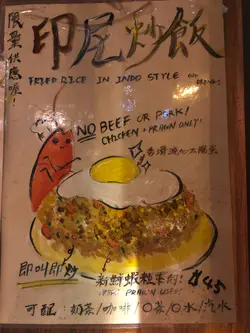 限量供應喔!
印尼炒飯
FRIED RICE IN INDO STYLE
NO BEEF OR PORK!
CHICKEN + PRAWN ONLY!
香滑流心太陽蛋
即叫即炒
新鮮蝦粒來的!
FRESH PRAWN USED!
$45
可配: 奶茶/咖啡/
水/汽水